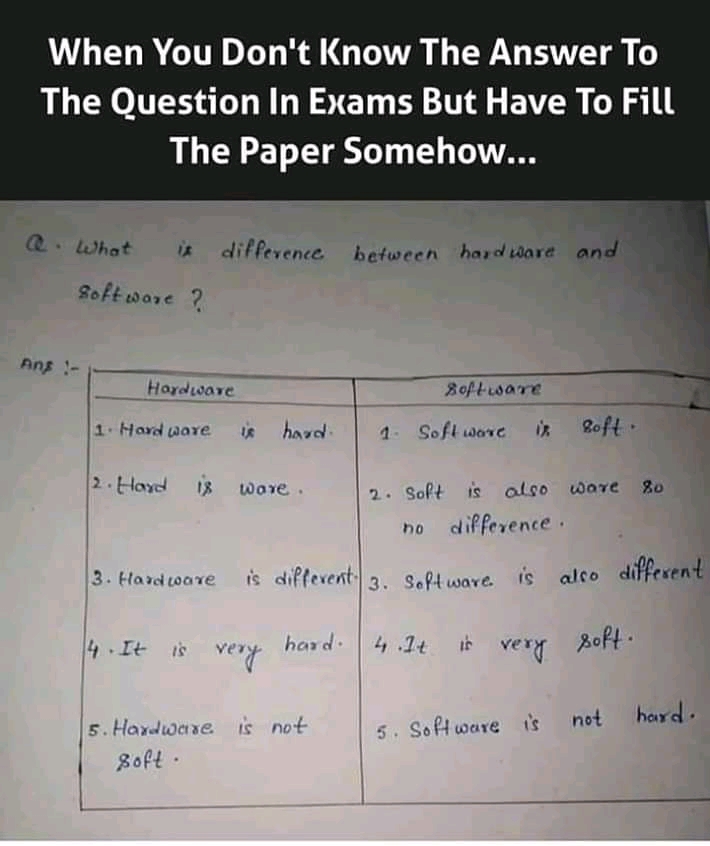 When You Don't Know The Answer To
The Question In Exams But Have To Fill
The Paper Somehow...
Q. What is difference between hardware and
Software ?
Ans :-
Hardware
Software
1. Hardware is hard.
1. Software is soft.
2. Hard is ware.
2. Soft is also ware so
no difference.
3. Hardware is different
3. Software is also different
4. It is very hard.
4. It is very soft.
5. Hardware is not
soft.
5. Software is not hard.